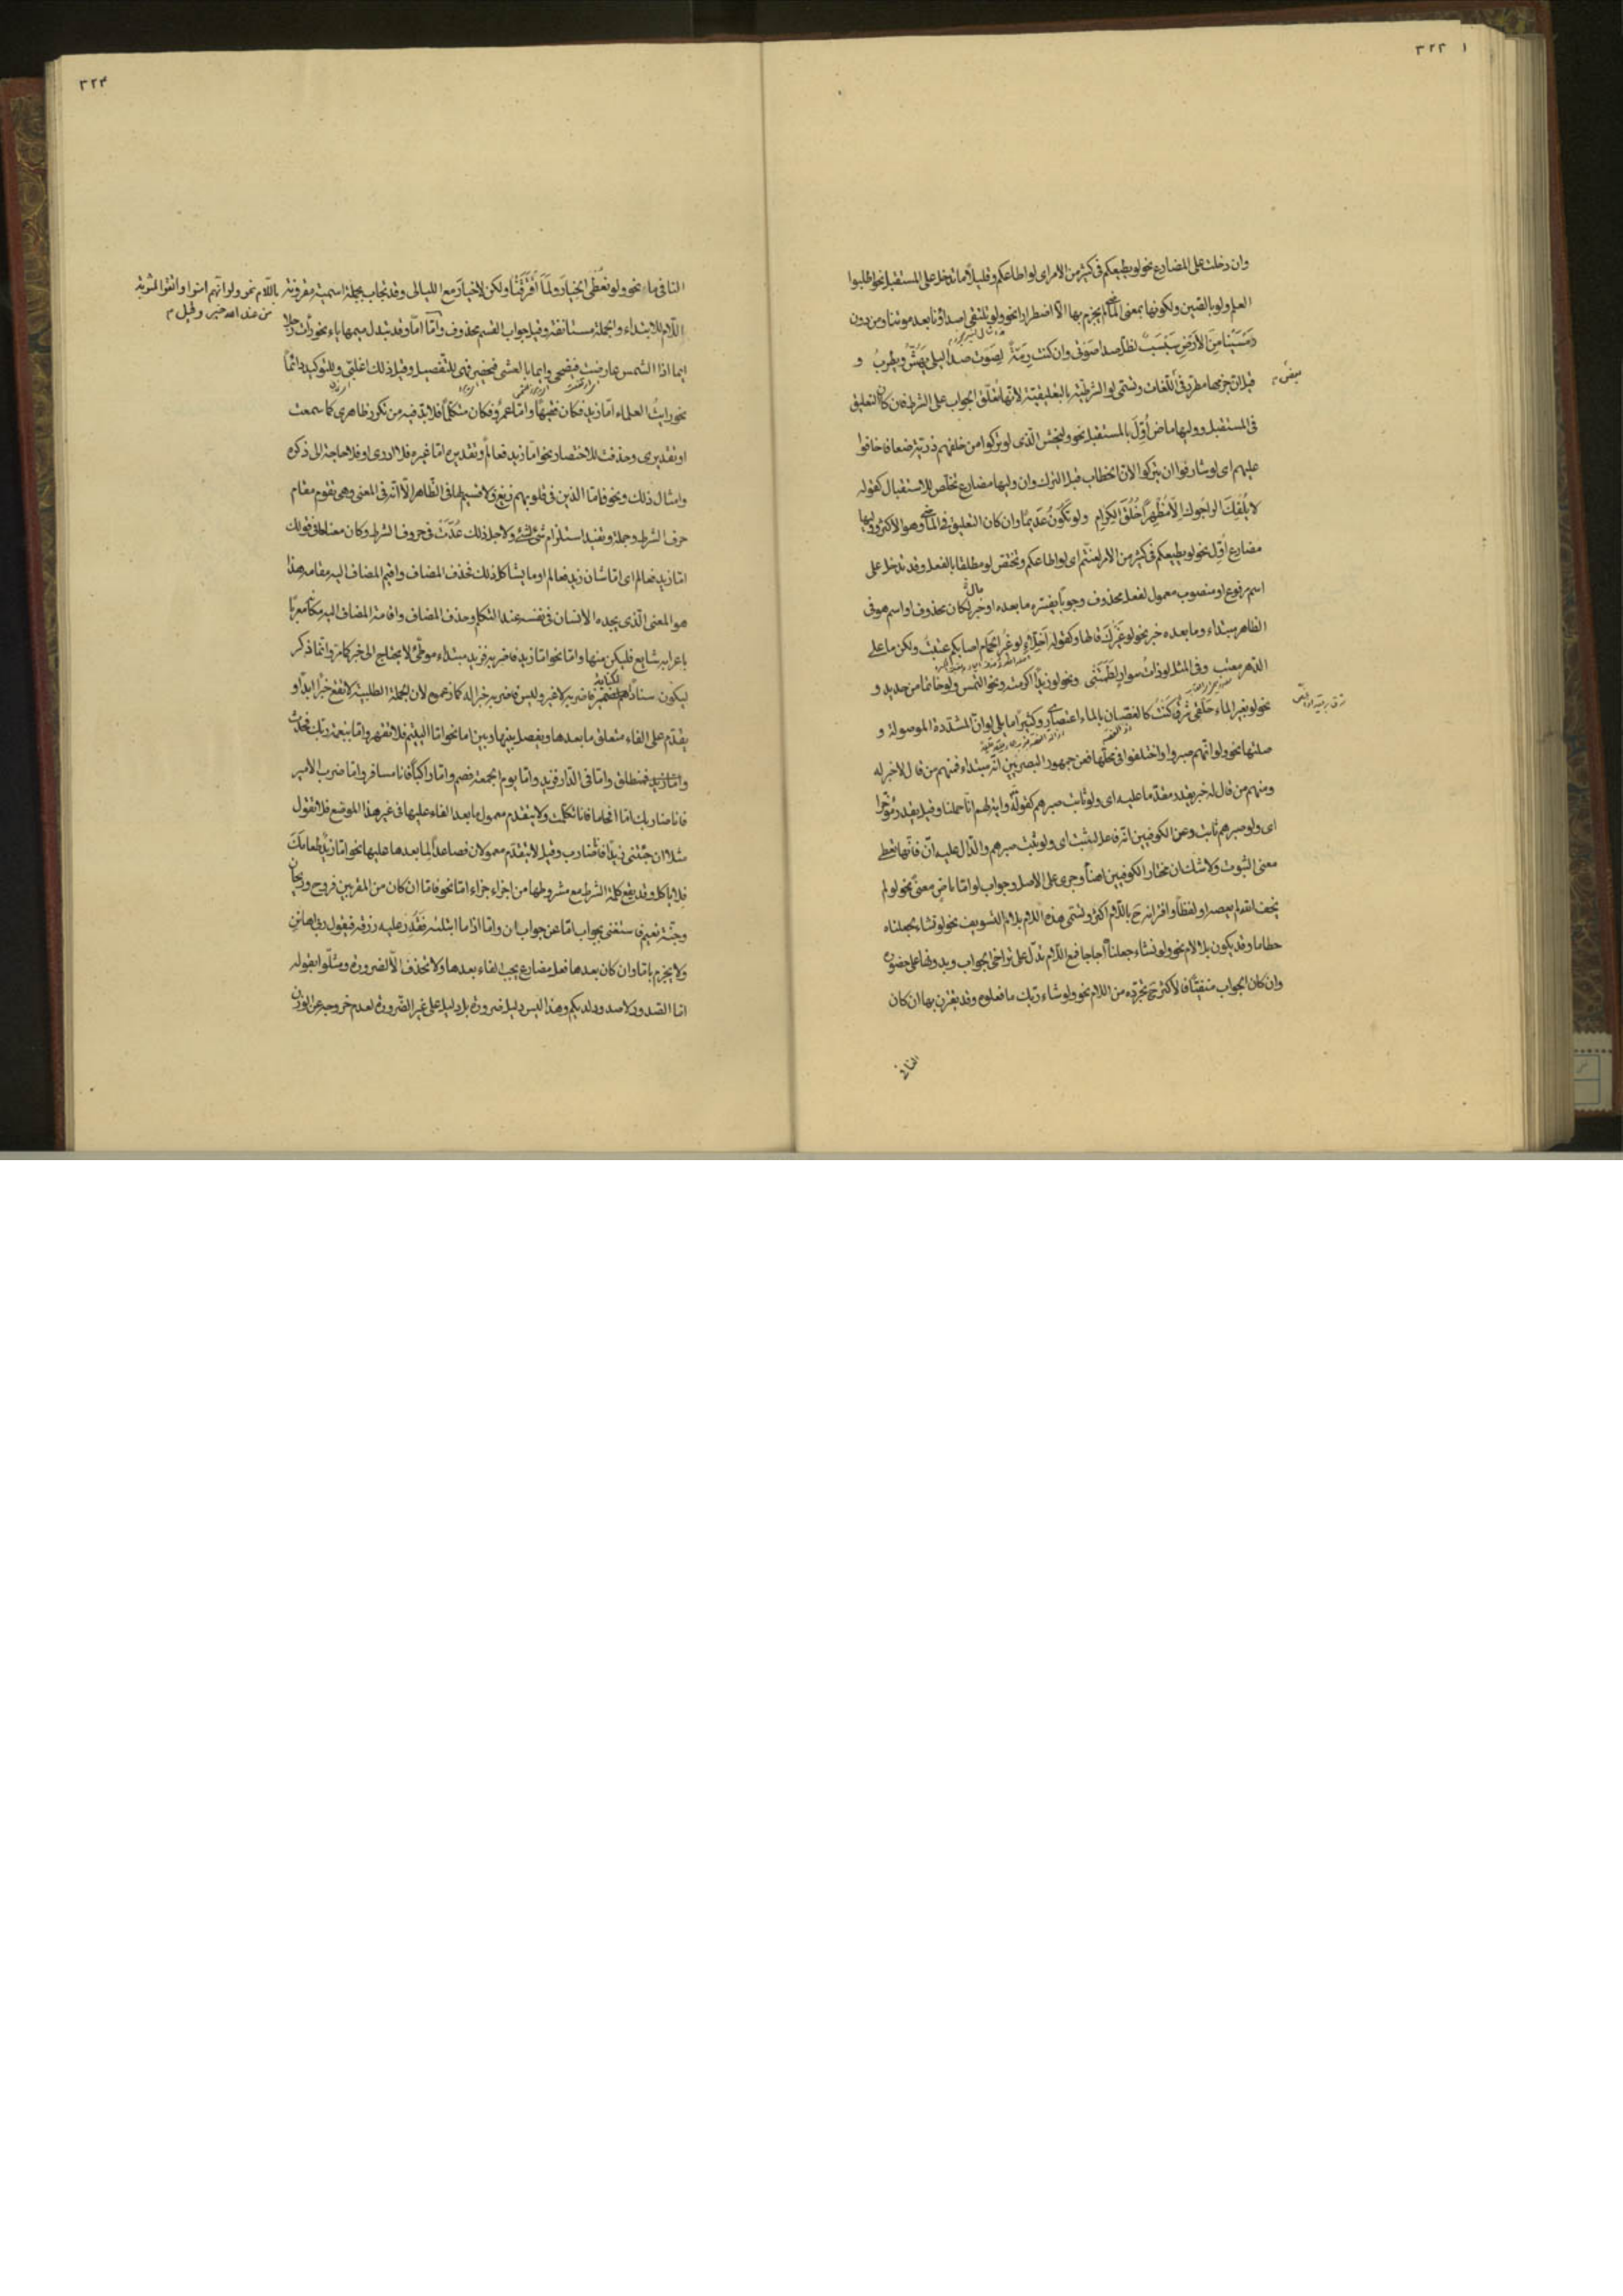 ٣٢٣
وان دخلت على المضارع نحو لو يطيعكم فى كثير من الامر اى لو اطاعكم وقليلاً ما تدخل على المستقبل نحو اطلبوا
العلم ولو بالصين ولكونها بمعنى الماضى لم يجزم بها الا اضطرارا نحو ولو تلتقى اصداؤنا بعد موتنا ومن دون
رمسينا من الارض سبسب لظل صدا صوتى وان كنت رمة لصوت صدا ليلى يهش ويطرب و
قيل ان جزمها مطرد فى اللغات وتسمى لو الشرطية بالتعليقية لانها تعلق الجواب على الشرط فان كان التعليق
فى المستقبل ووليها ماض أول بالمستقبل نحو وليخش الذى لو تركوا من خلفهم ذرية ضعافا خافوا
عليهم اى لو شارفوا ان يتركوا لان الخطاب قبل الترك وان وليها مضارع تخلص للاستقبال كقوله
لا يلفك الراجوك الا مظهرا خلق الكرام ولو تكون عديما وان كان التعليق فى الماضى وهو الاكثر ووليها
مضارع اول نحو لو يطيعكم فى كثير من الامر لعنتم اى لو اطاعكم وتختص لو مطلقا بالفعل وقد تدخل على
اسم مرفوع او منصوب معمول لفعل محذوف وجوبا يفسره ما بعده او خبر لكان محذوف او اسم هو فى
الظاهر مبتداء وما بعده خبر نحو لو غيرك قالها وكقوله اخلاى لو غير الحمام اصابكم عتبت ولكن ما على
الدهر معتب وفى المثل لو ذات سوار لطمتنى ونحو لو زيدا اكرمته ونحو التمس ولو خاتما من حديد و
نحو لو بغير الماء حلقى شرق كنت كالغصان بالماء اعتصارى وكثيرا ما يلى لو ان المشددة الموصولة و
صلتها نحو ولو انهم صبروا واختلفوا فى محلها فعن جمهور البصريين انه مبتداء فمنهم من قال لا خبر له
ومنهم من قال له خبر يقدر مقدما عليه اى ولو ثابت صبرهم كقوله واية لهم انا حملنا وقيل يقدر مؤخرا
اى ولو صبرهم ثابت وعن الكوفيين انه فاعل لثبت اى ولو ثبت صبرهم والدال عليه ان فانها تعطى
معنى الثبوت ولا شك ان مختار الكوفيين اهنأ وجرى على الاصل وجواب لو اما ماض معنى نحو لو لم
يخف الله لم يعصه او لفظا واقترانه ح باللام اكثر وتسمى هذه اللام بلام التسويف نحو لو نشاء لجعلناه
حطاما وقد يكون بلا لام نحو لو نشاء جعلنا اجاجا فمع اللام تدل على تراخى الجواب وبدونها على حضوره
وان كان الجواب منفيا فالاكثر ح تجرده من اللام نحو ولو شاء ربك ما فعلوه وقد يقترن بها ان كان
النافى
٣٢٤
النافى ما نحو ولو نعطى الخيار لما افترقنا ولكن لا خيار مع الليالى وقد تجاب بجملة اسمية مقرونة باللام نحو ولو انهم امنوا واتقوا لمثوبة
من عند الله خير وقيل م
اللام للابتداء والجملة مستانفة وقيل جواب القسم محذوف واما اما وقد تبدل ميمها ياء نحو رأت رجلا
ايما اذا الشمس عارضت فيضحى وايما بالعشى فيخصر فهى للتفصيل وقيل ذلك اغلبى وللتوكيد دائما
نحو رايت العلماء اما زيد فكان فقيها واما عمرو فكان متكلما فلا بد فيه من تكرر ظاهرى كما سمعت
او تقديرى وحذفت للاختصار نحو اما زيد فعالم وتقديره اما غيره فلا ادرى او فلا حاجة الى ذكره
وامثال ذلك ونحو فاما الذين فى قلوبهم زيغ ولا قسيم لها فى الظاهر الا انه فى المعنى وهى تقوم مقام
حرف الشرط وجملة وتفيد استلزام شىء لشىء ولاجل ذلك عدت فى حروف الشرط وكان معناها فى قولك
اما زيد فعالم اى اما شان زيد فعالم او ما يشاكل ذلك فحذف المضاف واقيم المضاف اليه مقامه هذا
هو المعنى الذى يجده الانسان فى نفسه عند التكلم وحذف المضاف واقامة المضاف اليه مكانه معربا
باعرابه شايع فليكن منها واما نحو اما زيد فاضربه فزيد مبتداء موطئ لا يحتاج الى خبر كما مر وانما ذكر
ليكون سنادا فاضربه لا غير وليس فاضربه خبرا له كما زعموه لان الجملة الطلبية لا تقع خبرا ابدا و
يقدم على الفاء متعلق ما بعدها ويفصل بينها وبين اما نحو اما اليتيم فلا تقهر واما بنعمة ربك فحدث
واما زيد فمنطلق واما فى الدار فزيد واما يوم الجمعة فصم واما راكبا فانا مسافر واما ضرب الامير
فانا ضاربك اما افحاما فانا تكلمت ولا يتقدم معمول ما بعد الفاء عليها فى غير هذا الموضع فلا تقول
مثلا ان جئتنى زيدا فانا ضارب وقيل لا يتقدم معمولان فصاعدا لما بعدها عليها نحو اما زيد طعامك
فلا ياكل وقد يقع كلمة الشرط مع مشروطها من اجزاء جزاء اما نحو فاما ان كان من المقربين فروح وريحان
وجنة نعيم فاستغنى بجواب اما عن جواب ان واما اذا ما ابتلاه فقدر عليه رزقه فيقول ربى اهانن
ولا يجزم باما وان كان بعدها فعل مضارع يجب الفاء بعدها ولا تحذف الا لضرورة ومثلوا بقوله
اما الصدود لا صدود لديكم وهذا ليس دليل ضرورة بل دليل على غير الضرورة لعدم خروجه عن الوزن